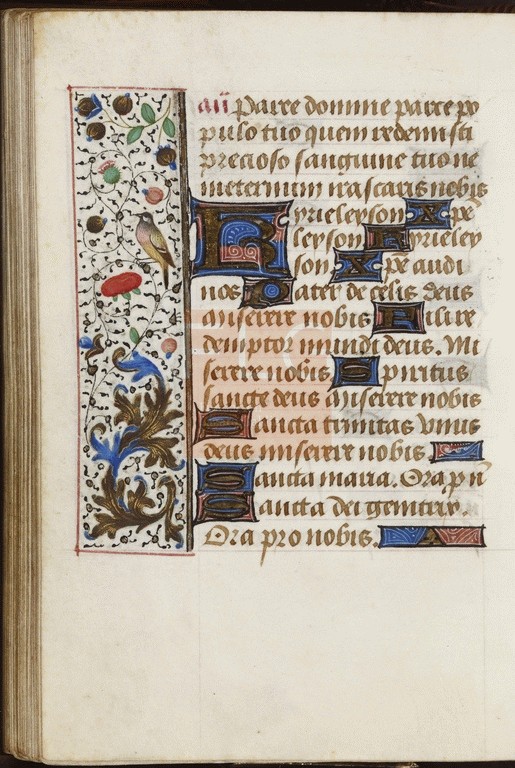 añ Parce domine parce po
pulo tuo quem redemisti
precioso sanguine tuo ne
ineternum irascaris nobis
Kyrieleyson X p̄e
leyson Kyrieley
son X p̄e audi
nos Pater de celis deus
miserere nobis Fili re
demptor mundi deus. Mi
serere nobis Spiritus
sancte deus miserere nobis
Sancta trinitas vnus
deus miserere nobis
Sancta maria. Ora p n̄
Sancta dei genitrix.
Ora pro nobis.